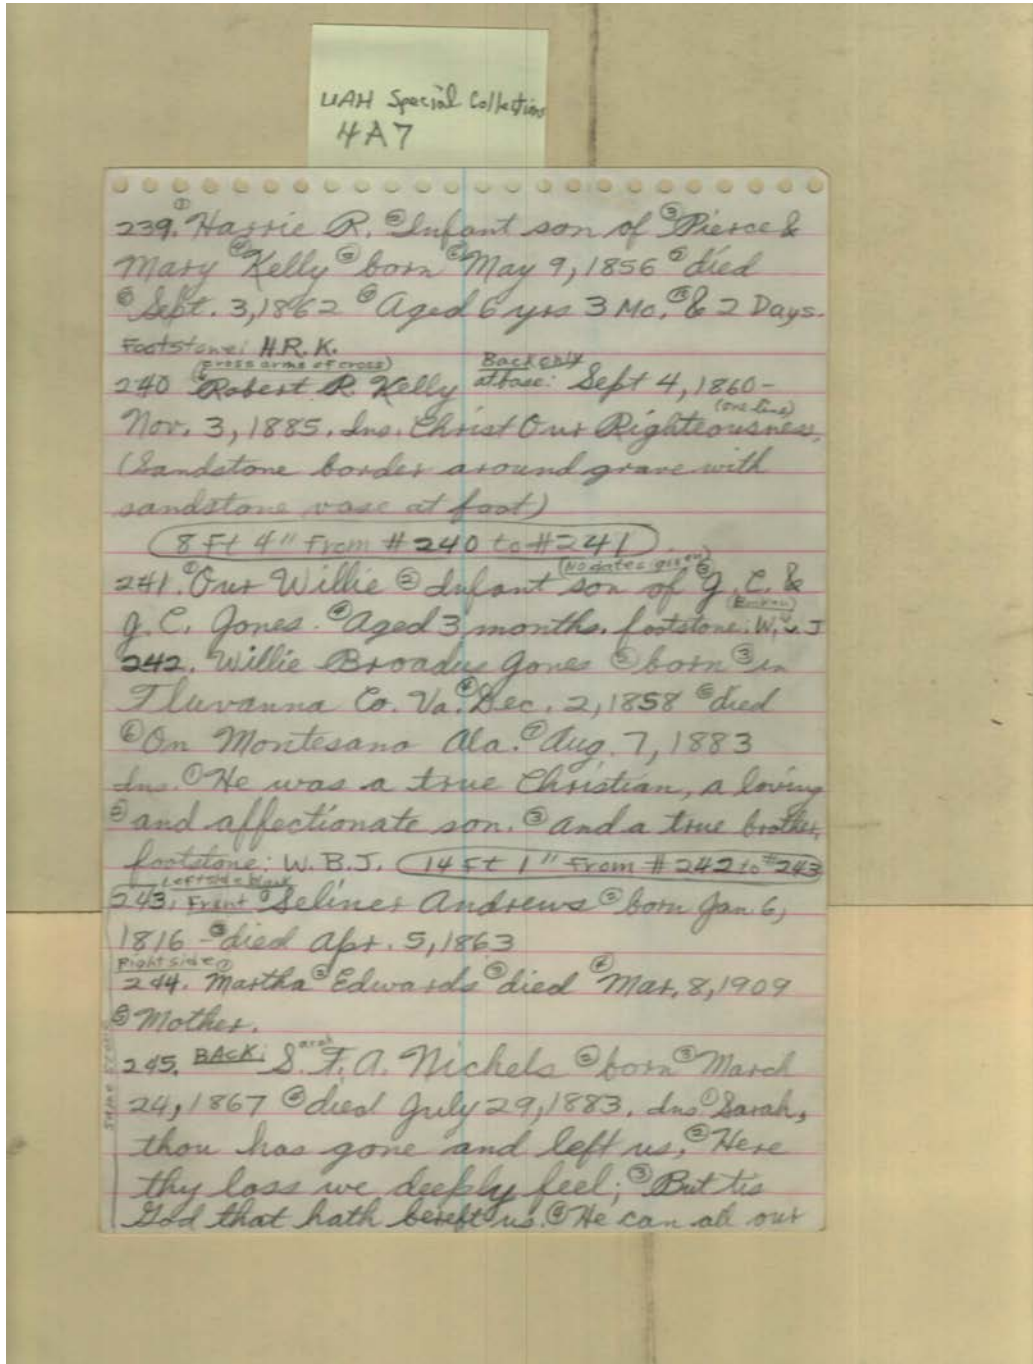 UAH Special Collections
4A7
239. ① Harrie R. ② Infant son of ③ Pierce &
Mary ④ Kelly ⑤ born ⑥ May 9, 1856 ⑦ died
⑧ Sept. 3, 1862 ⑨ Aged 6 yrs 3 Mo. ⑩ & 2 Days.
Footstone: H.R.K.
(Cross arms of cross) Back only
240 Robert R. Kelly at base: Sept 4, 1860 -
(one line)
Nov. 3, 1885. Ins. Christ Our Righteousness,
(Sandstone border around grave with
sandstone vase at foot)
8 Ft 4" From #240 to #241
(No dates given)
241. ① Our Willie ② Infant son of ③ J. C. &
(Broken)
J. C. Jones. ④ Aged 3 months. footstone: W. J
242. Willie Broadus Jones ② born ③ in
Fluvanna Co. Va. ④ Dec. 2, 1858 ⑤ died
⑥ On Montesano Ala. ⑦ Aug. 7, 1883
Ins. ① He was a true Christian, a loving
② and affectionate son. ③ And a true brother,
footstone: W.B.J. 14 Ft 1" From #242 to #243
Left side blank
243. Front ① Seliner Andrews ② born Jan. 6,
1816 - ③ died Apr. 5, 1863
Right side ①
244. Martha ② Edwards ③ died ④ Mar. 8, 1909
⑤ Mother.
same stone
245. BACK: S.arah F. A. Nichels ② born ③ March
24, 1867 ④ died July 29, 1883. Ins. ① Sarah,
thou has gone and left us, ② Here
thy loss we deeply feel; ③ But tis
God that hath bereft us. ④ He can all our